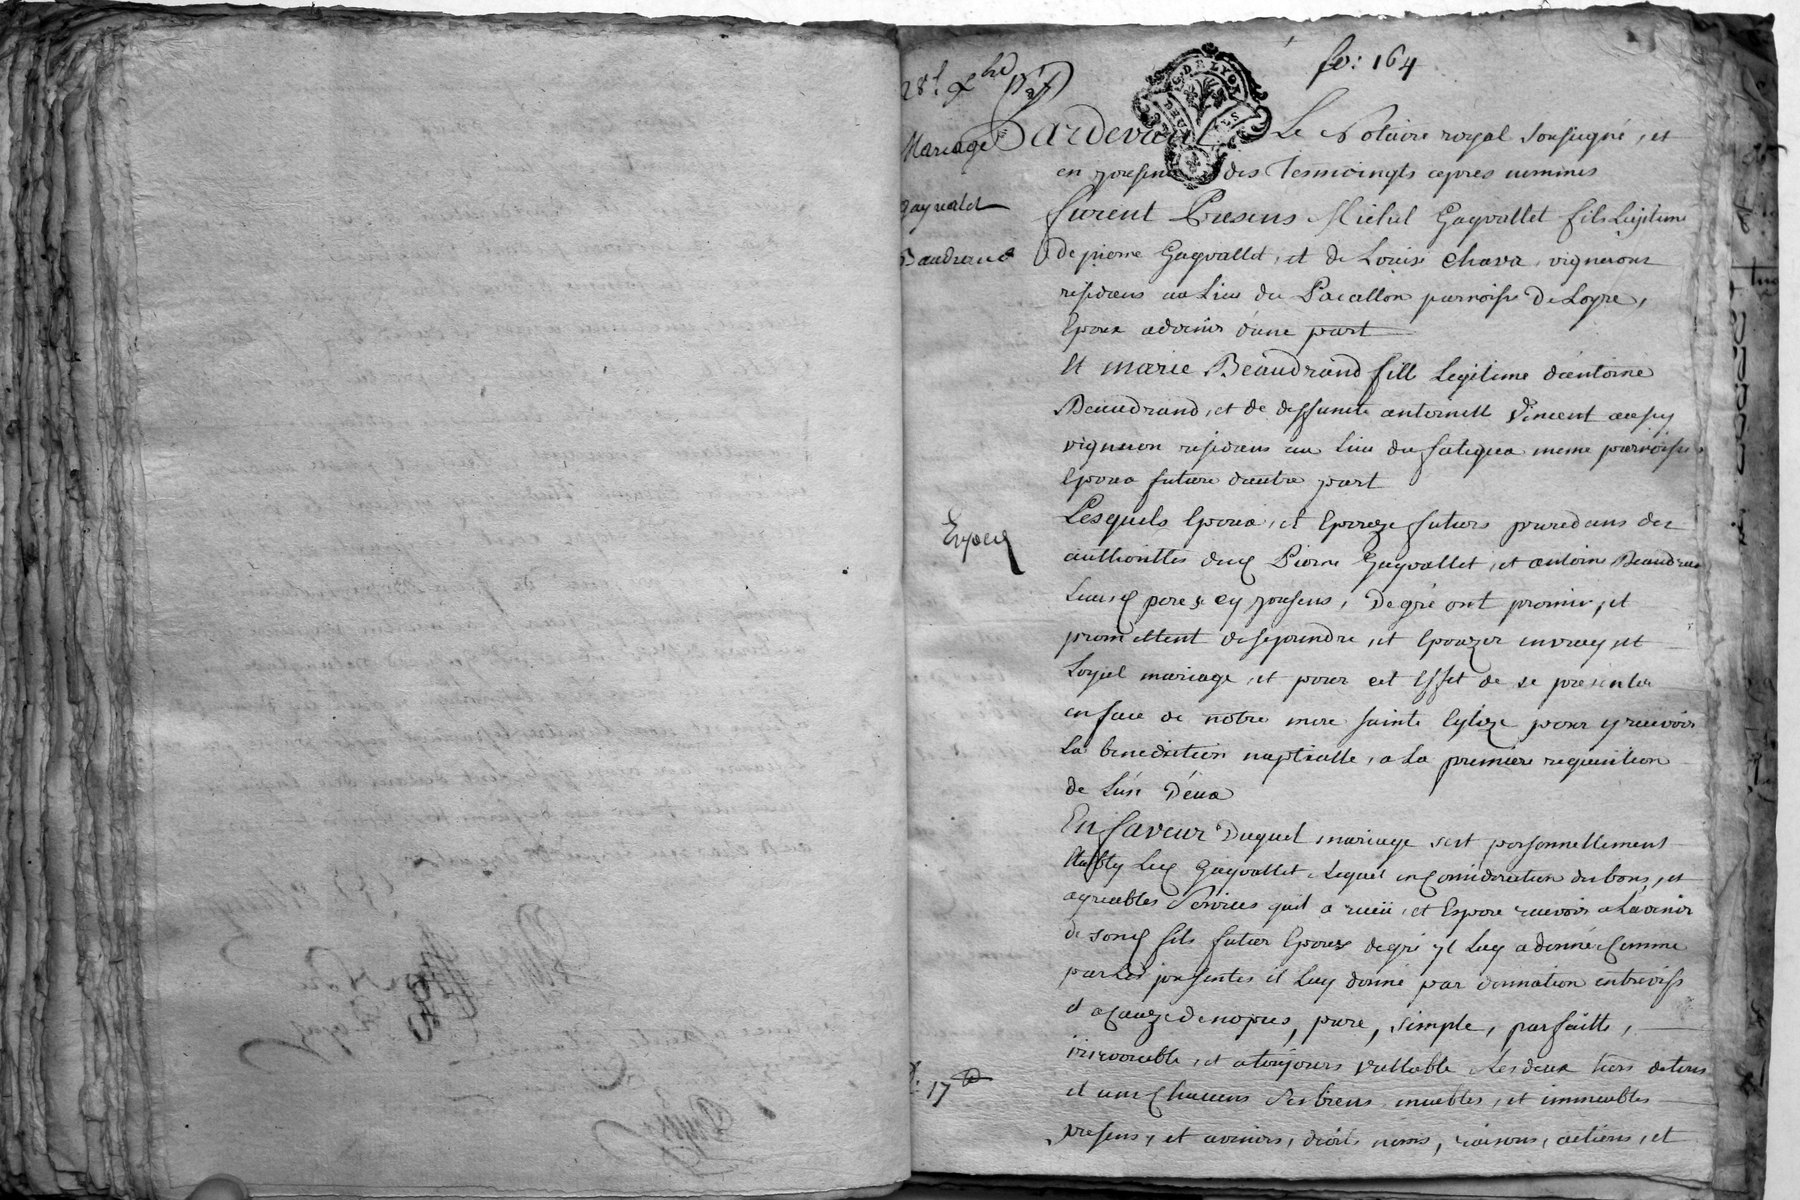 fo: 164
28e xbre
Mariage
Gayvallet
Beaudrand
Pardevant Le Notaire royal soussigné, et
G. DE LYON
en presence des Tesmoingts apres nommés
furent Presens Michel Gayvallet fils Legitime
de pierre Gayvallet, et de Louise Chava, vignerons
residans au Lieu du Pacallon parroisse De Loyre,
Epoux advenir d'une part
Et marie Beaudrand fille Legitime d'antoine
Beaudrand, et de deffunte antoinette Vincent aussy
vigneron residans au Lieu du meme parroisse
Epouse future d'autre part
Exped
Lesquels Epoux, et Epouze futurs procedans des
authorittés desd Pierre Gayvallet, et antoine Beaudrand
Leursd peres cy presens, De gré ont promis, et
promettent de se prendre, et Epouzer en vray, et
Loyal mariage, et pour cet Effet de se presenter
en face de notre mere sainte Eglize pour y recevoir
La benediction nuptialle, a La premiere requisition
de L'un D'eux
En faveur Duquel mariage s'est personnellement
Etably Led Gayvallet, Lequel en Consideration des bons, et
agreables Services qu'il a receü, et Espere recevoir a L'avenir
de sond fils futur Epoux de gré yl Luy a donné Comme
par Les presentes il Luy donne par donnation entrevifs
et a Cauze de nopces, pure, simple, parfaitte,
17
irrevocable, et a toujours vallable, Les deux tiers de tous
et uns Chacuns Ses biens meubles, et immeubles
presens, et avenirs, droits, noms, raisons, actions, et